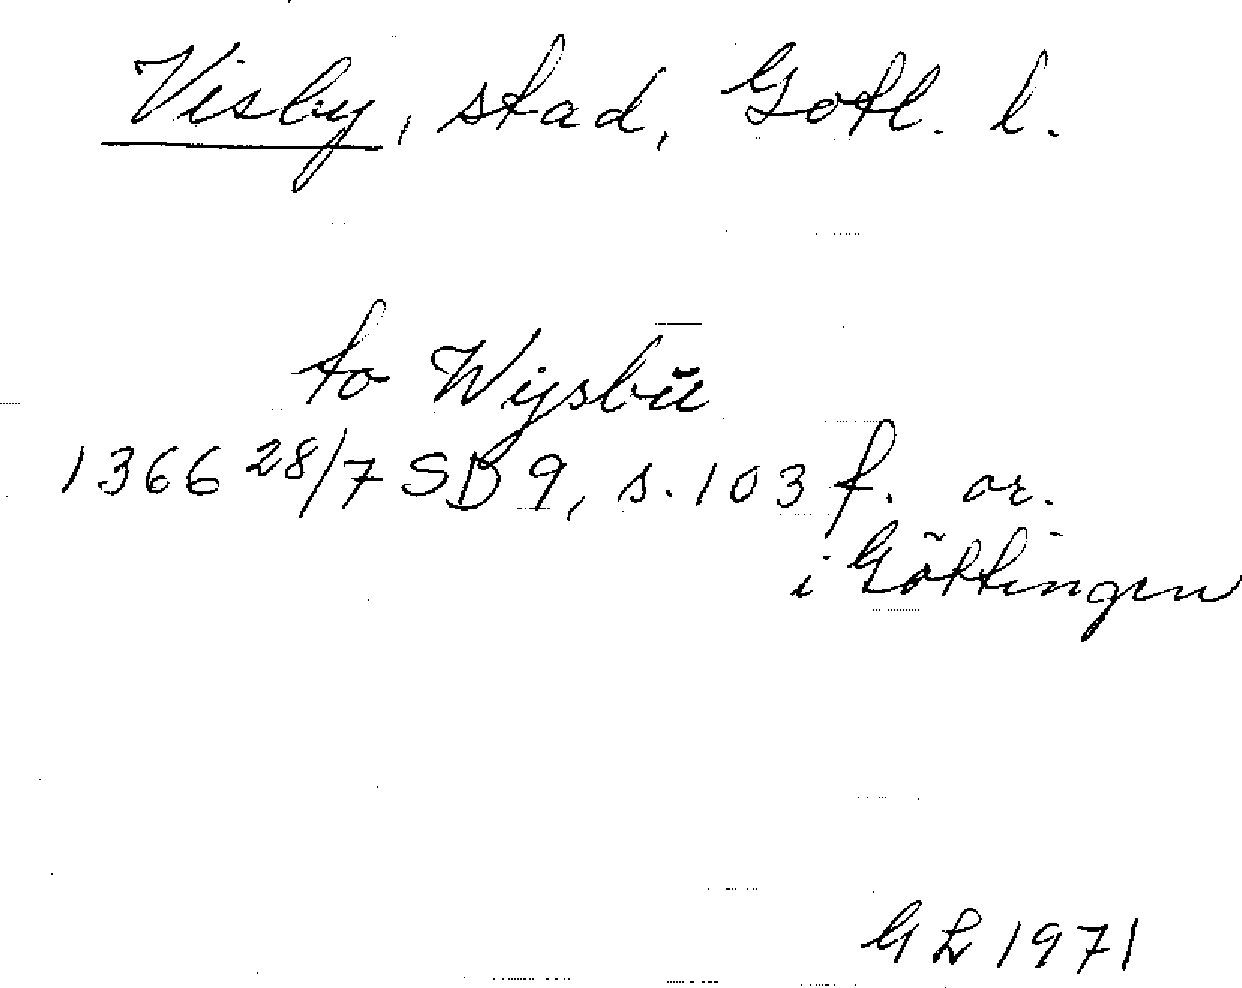 Visby, stad, Gotl. l.
to Wijsbü
1366 28/7 SD 9, s. 103 f. or.
i Göttingen
GL 1971